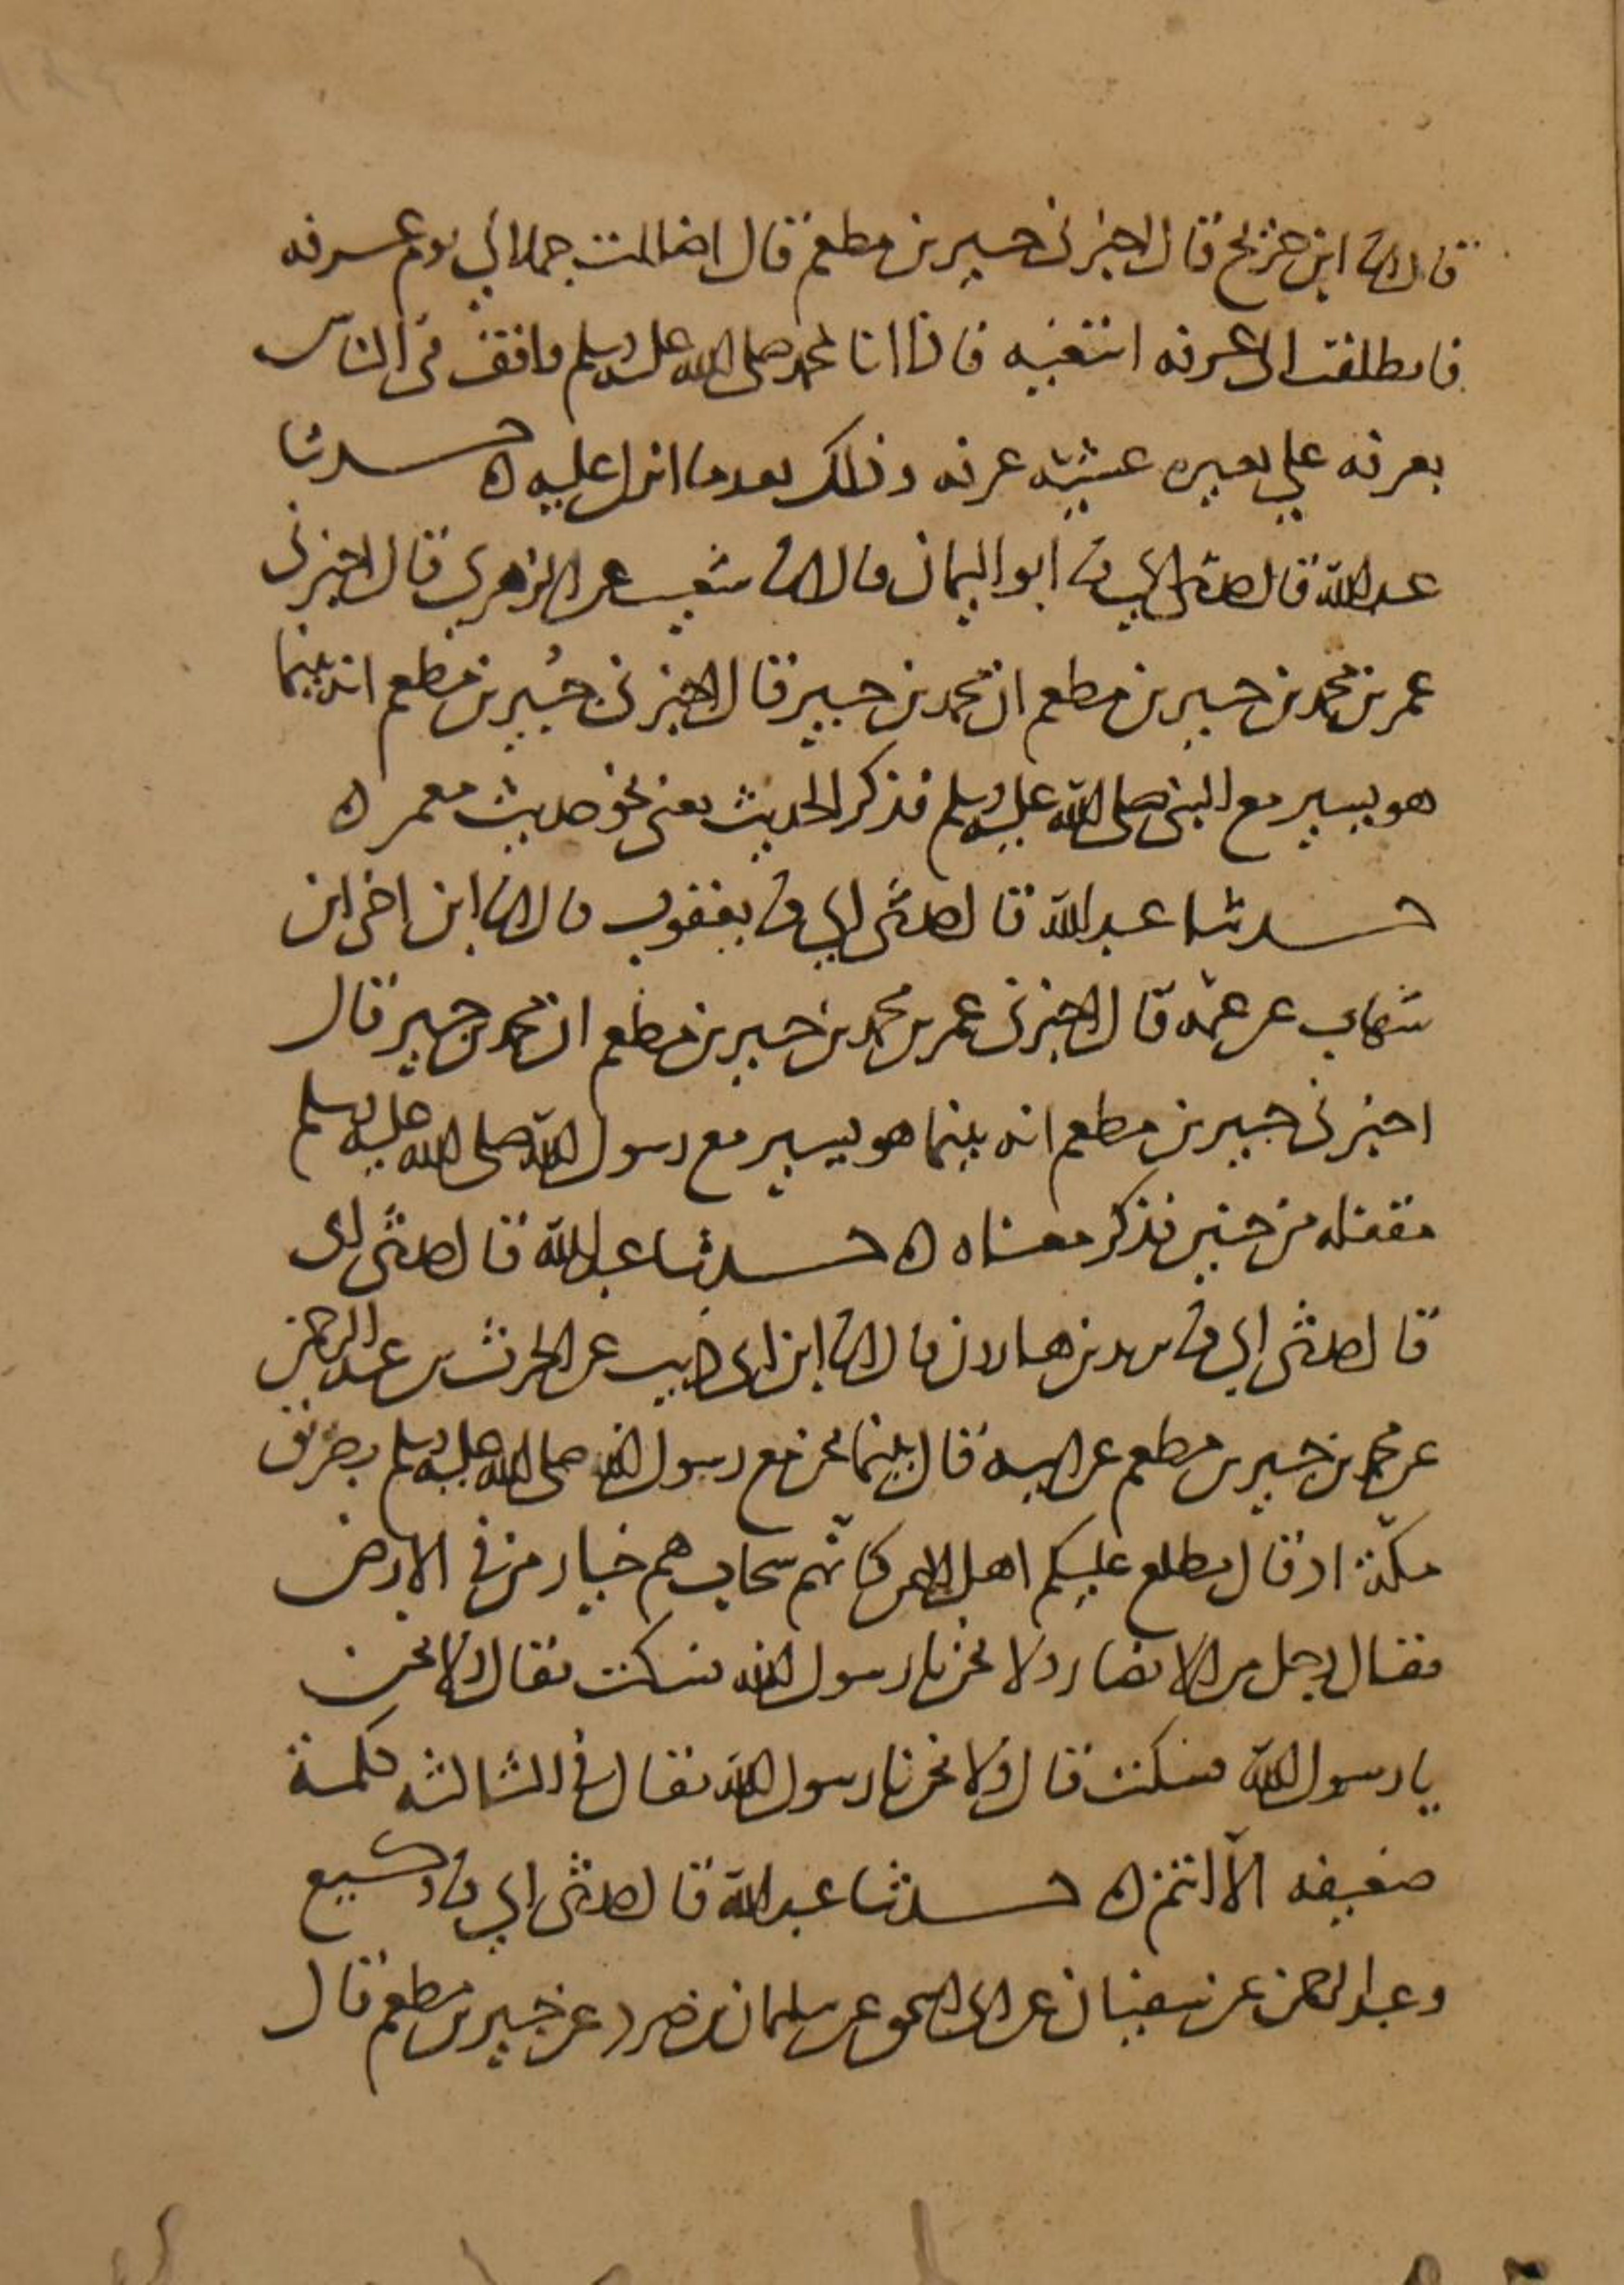 قال انا ابن جريج قال اخبرني جبير بن مطعم قال اضللت جملا لي يوم عرفه
فانطلقت الى عرفه ابتغيه فاذا انا بمحمد صلى الله عليه وسلم واقف في الناس
بعرفه علي بعيره عشيه عرفه وذلك بعد ما انزل عليه ه حدثنا
عبد الله قال حدثني ابي ثنا ابو اليمان قال انا شعيب عن الزهري قال اخبرني
عمر بن محمد بن جبير بن مطعم ان محمد بن جبير قال اخبرني جُبير بن مطعم انه بينما
هو يسير مع النبي صلى الله عليه وسلم فذكر الحديث يعني نحو حديث معمر ه
حدثنا عبد الله قال حدثني ابي ثنا يعقوب قال انا ابن اخي ابن
شهاب عن عمّه قال اخبرني عمر بن محمد بن جبير بن مطعم ان محمد بن جبير قال
اخبرني جبير بن مطعم انه بينما هو يسير مع رسول الله صلى الله عليه وسلم
مقفله من حنين فذكر معناه ه حدثنا عبد الله قال حدثني ابي
قال حدثني ابي ثنا يزيد بن هارون قال انا ابن ابي ذيب عن الحرث بن عبد الرحمن
عن محمد بن جبير بن مطعم عن ابيه قال بينما نحن مع رسول الله صلى الله عليه وسلم بطريق
مكّة اذ قال يطلع عليكم اهل اليمن كانّهم سحاب هم خيار من في الارض
فقال رجل من الانصار ولا نحن يا رسول الله فسكت فقال ولا نحن
يا رسول الله فسكت قال ولا نحن يا رسول الله فقال في الثالثه كلمة
ضعيفه الاّ انتم ه حدثنا عبد الله قال حدثني ابي ثنا وكيع
وعبد الرحمن عن سفيان عن ابي اسحق عن سليمان بن صرد عن جبير بن مطعم قال